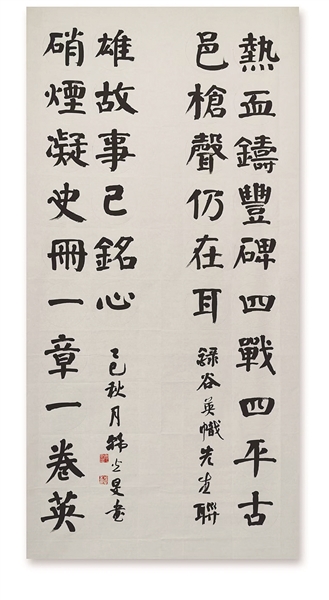 熱血鑄豐碑四戰四平古
邑槍聲仍在耳
錄谷英幟先生聯
硝煙凝史冊一章一卷英
雄故事已銘心
乙巳秋月韓書